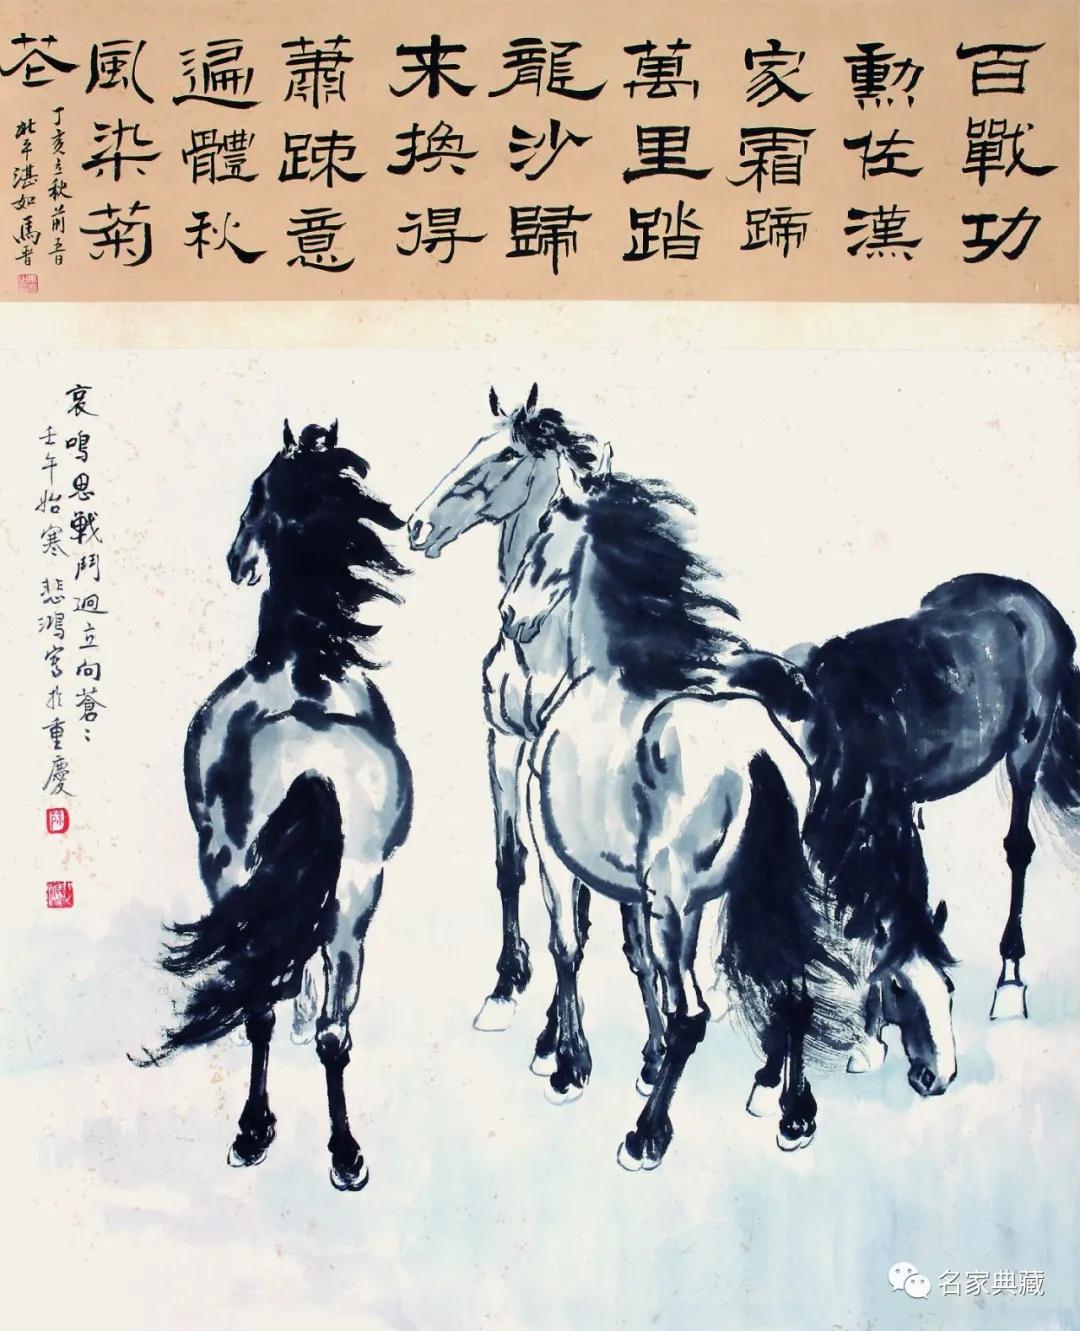 百戰功
勳佐漢
家霜蹄
萬里踏
龍沙歸
来換得
蕭疎意
遍體秋
風染菊
丁亥立秋前五日
北平湛如馬晋
哀鳴思戰鬥迥立向蒼〻
壬午始寒 悲鴻寫於重慶
名家典藏